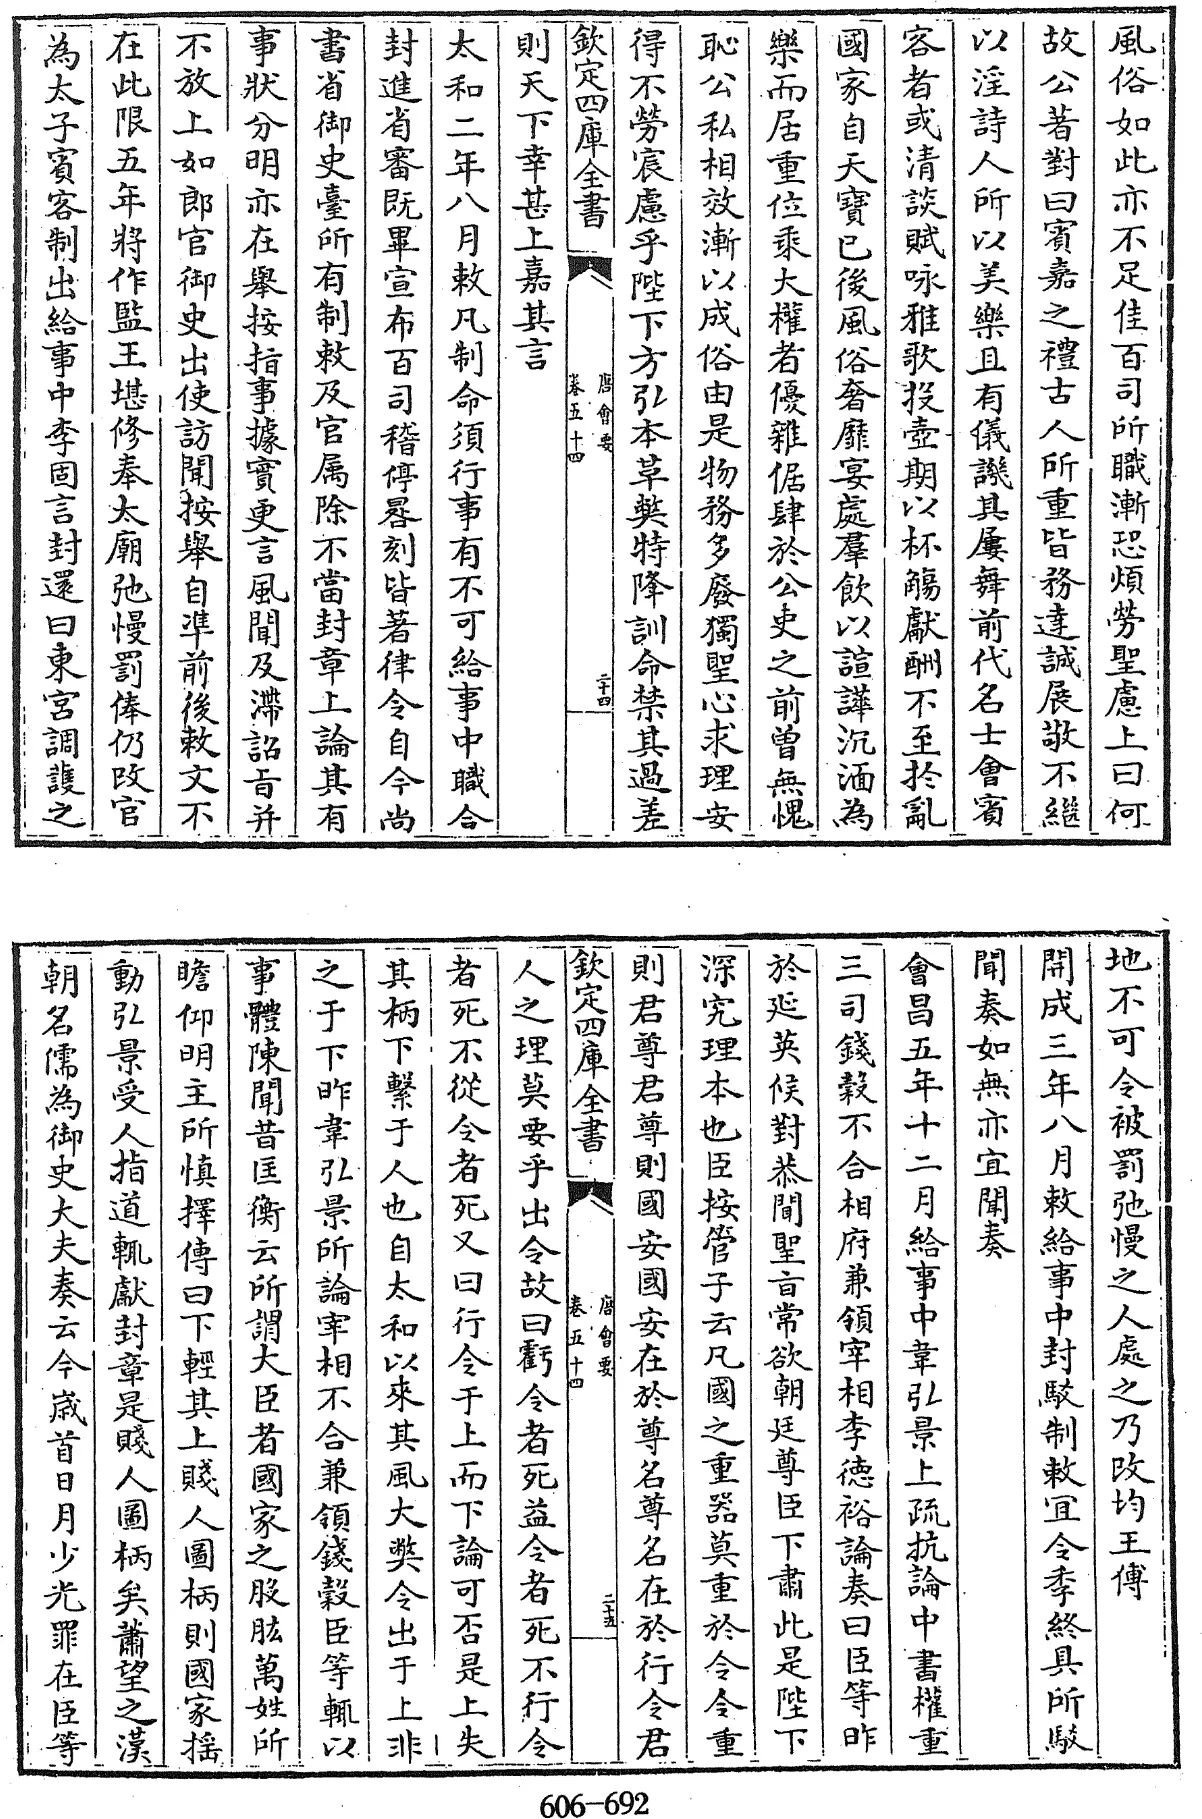 風俗如此亦不足佳百司所職漸恐煩勞聖慮上曰何
故公著對曰賓嘉之禮古人所重皆務達誠展敬不繼
以淫詩人所以美樂且有儀譏其屢舞前代名士會賓
客者或清談賦咏雅歌投壺期以杯觴獻酬不至於亂
國家自天寶已後風俗奢靡宴處羣飲以諠譁沉湎為
樂而居重位乘大權者優雜倨肆於公吏之前曾無愧
恥公私相效漸以成俗由是物務多廢獨聖心求理安
得不勞宸慮乎陛下方引本草獘特降訓命禁其過差
欽定四庫全書 唐會要 卷五十四 二十四
則天下幸甚上嘉其言
太和二年八月敕凡制命須行事有不可給事中職合
封進省審既畢宣布百司稽停晷刻皆著律令自今尚
書省御史臺所有制敕及官属除不當封章上論其有
事狀分明亦在舉按指事據實更言風聞及滯詔㫖并
不放上如郎官御史出使訪聞按舉自凖前後敕文不
在此限五年將作監王堪修奉太廟弛慢罰俸仍改官
為太子賓客制出給事中李固言封還曰東宮調護之
地不可令被罰弛慢之人處之乃改均王傅
開成三年八月敕給事中封駁制敕宜令季終具所駁
聞奏如無亦宜聞奏
會昌五年十二月給事中韋弘景上疏抗論中書權重
三司錢穀不合相府兼領宰相李德裕論奏曰臣等昨
於延英候對恭聞聖㫖常欲朝廷尊臣下肅此是陛下
深究理本也臣按管子云凡國之重器莫重於令令重
則君尊君尊則國安國安在於尊名尊名在於行令君
欽定四庫全書 唐會要 卷五十四 二十五
人之理莫要乎出令故曰虧令者死益令者死不行令
者死不從令者死又曰行令于上而下論可否是上失
其柄下繫于人也自太和以來其風大獘令出于上非
之于下昨韋弘景所論宰相不合兼領錢穀臣等輒以
事體陳聞昔匡衡云所謂大臣者國家之股肱萬姓所
瞻仰明主所慎擇傳曰下輕其上賤人圖柄則國家揺
動弘景受人指道輒獻封章是賤人圖柄矣蕭望之漢
朝名儒為御史大夫奏云今歲首日月少光罪在臣等
606-692